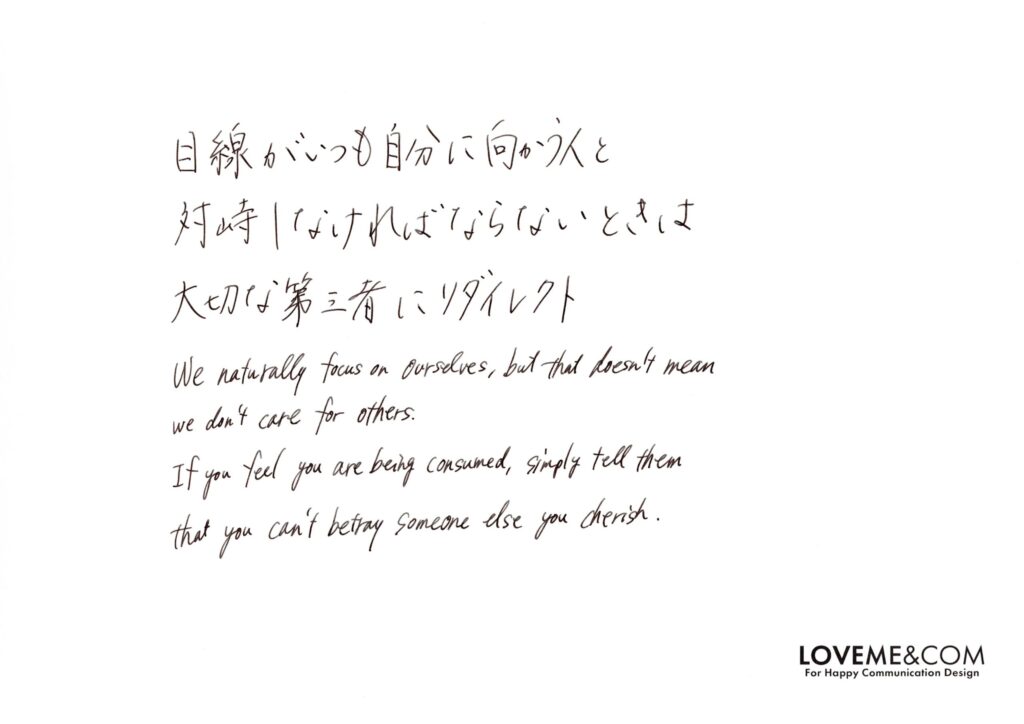 目線がいつも自分に向かう人と
対峙しなければならないときは
大切な第三者にリダイレクト
We naturally focus on ourselves, but that doesn't mean
we don't care for others.
If you feel you are being consumed, simply tell them
that you can't betray someone else you cherish.
LOVEME&COM
For Happy Communication Design